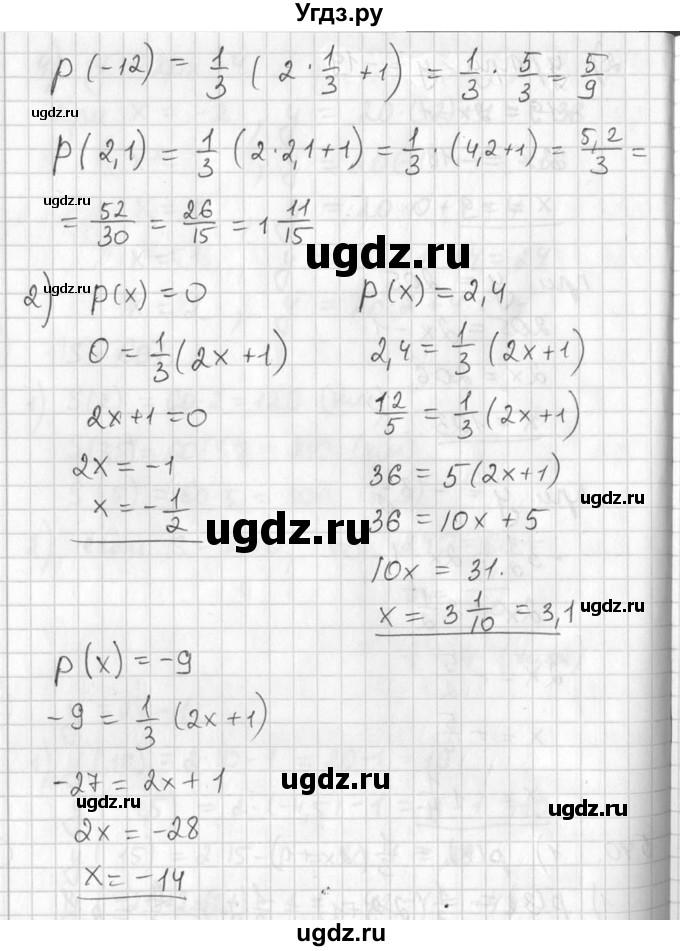 Угдз.ру
p(-12) = 1/3 (2 · 1/3 + 1) = 1/3 · 5/3 = 5/9
ugdz.ru
p(2,1) = 1/3 (2 · 2,1 + 1) = 1/3 · (4,2 + 1) = 5,2/3 =
ugdz.ru
= 52/30 = 26/15 = 1 11/15
ugdz.ru
ugdz.ru
2) p(x) = 0
0 = 1/3 (2x + 1)
2x + 1 = 0
2x = -1
x = -1/2
ugdz.ru
p(x) = 2,4
2,4 = 1/3 (2x + 1)
ugdz.ru
12/5 = 1/3 (2x + 1)
36 = 5(2x + 1)
ugdz.ru
36 = 10x + 5
10x = 31.
x = 3 1/10 = 3,1
ugdz.ru
p(x) = -9
-9 = 1/3 (2x + 1)
-27 = 2x + 1
ugdz.ru
ugdz.ru
ugdz.ru
2x = -28
x = -14